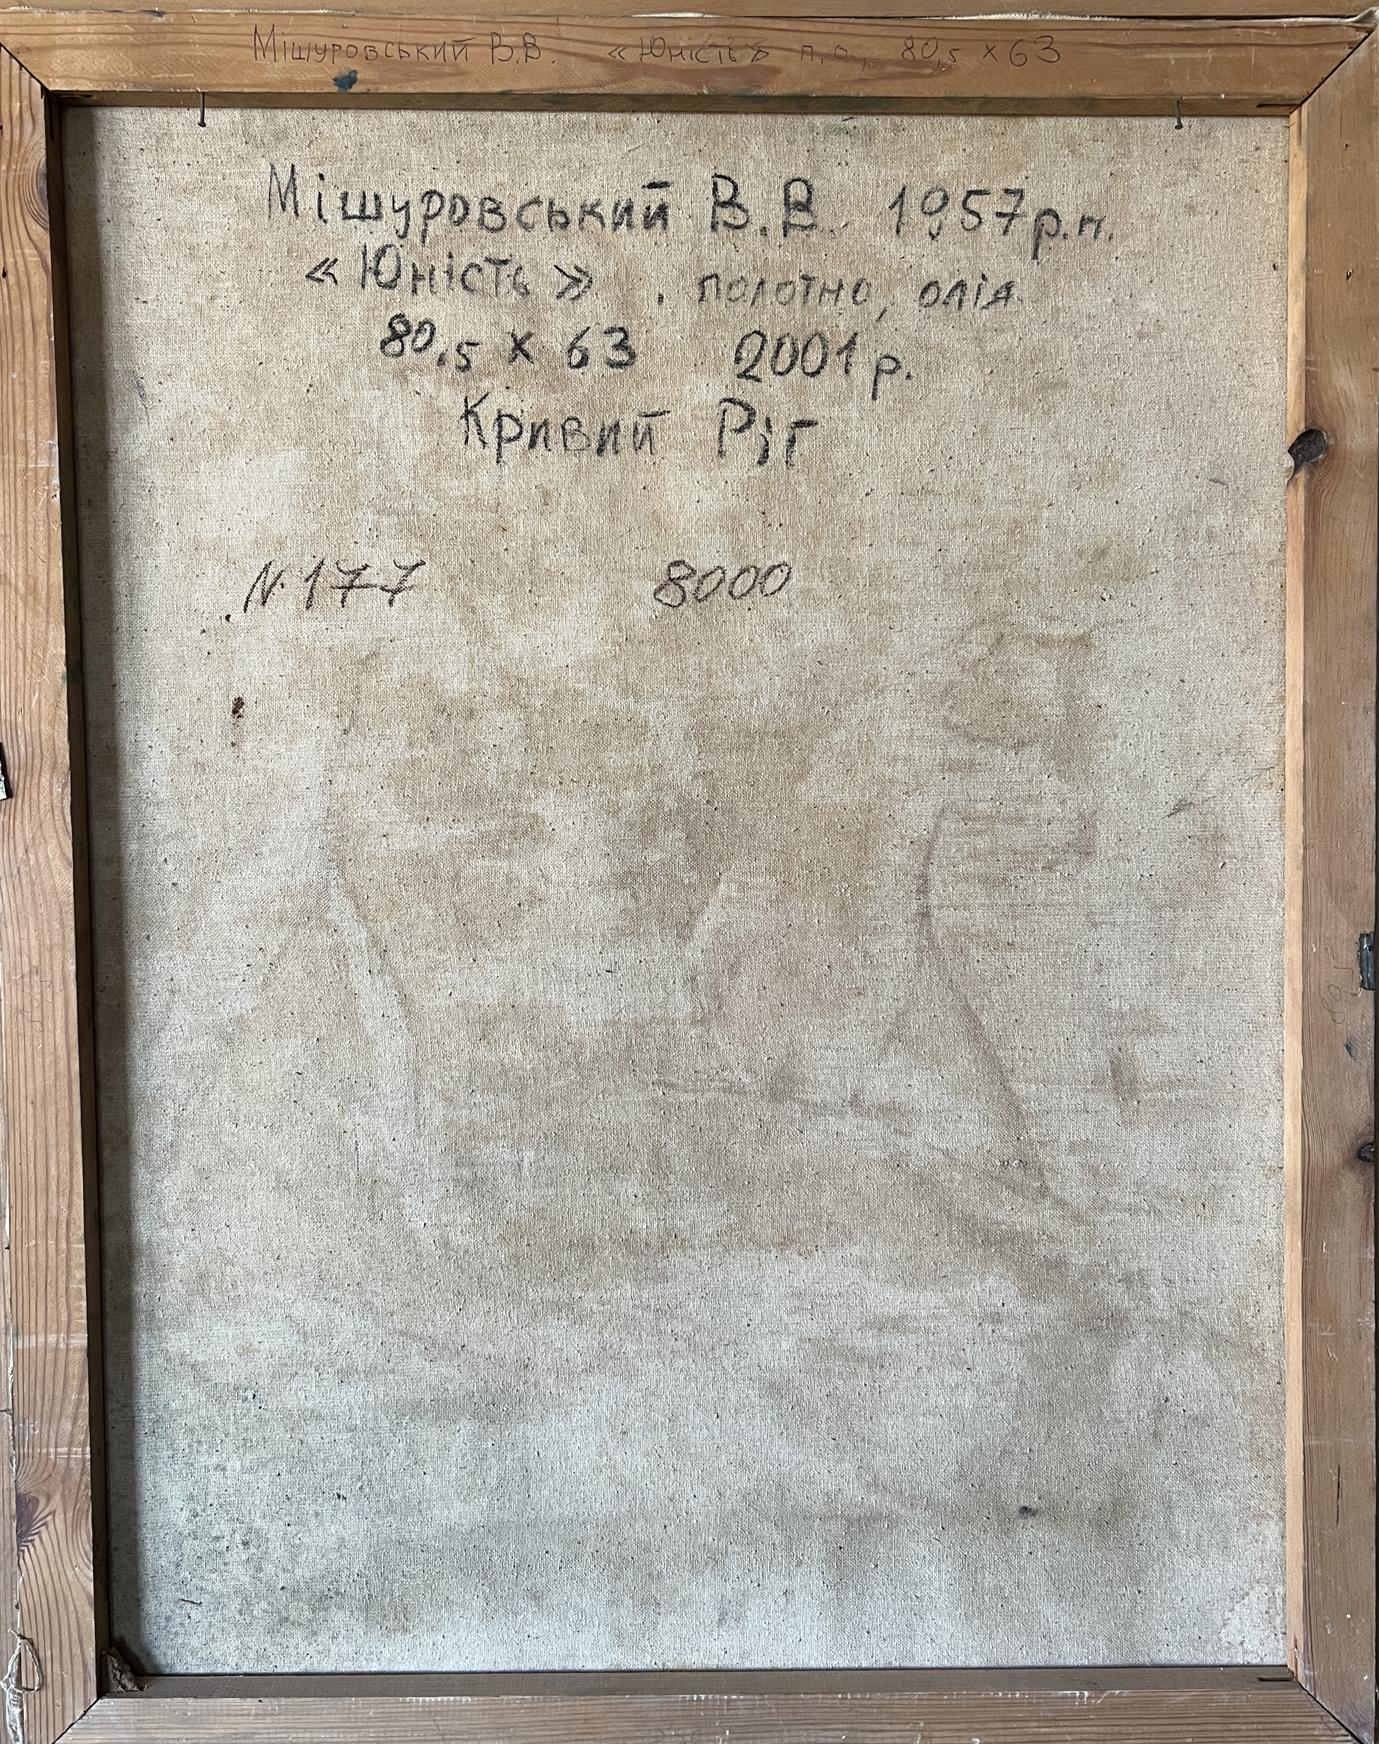 Мішуровський В.В. «Юність» п.о., 80,5 х 63
Мішуровський В.В. 1957р.н.
«Юність». полотно, олія
80,5 х 63 2001р.
Кривий Ріг
N.177 8000